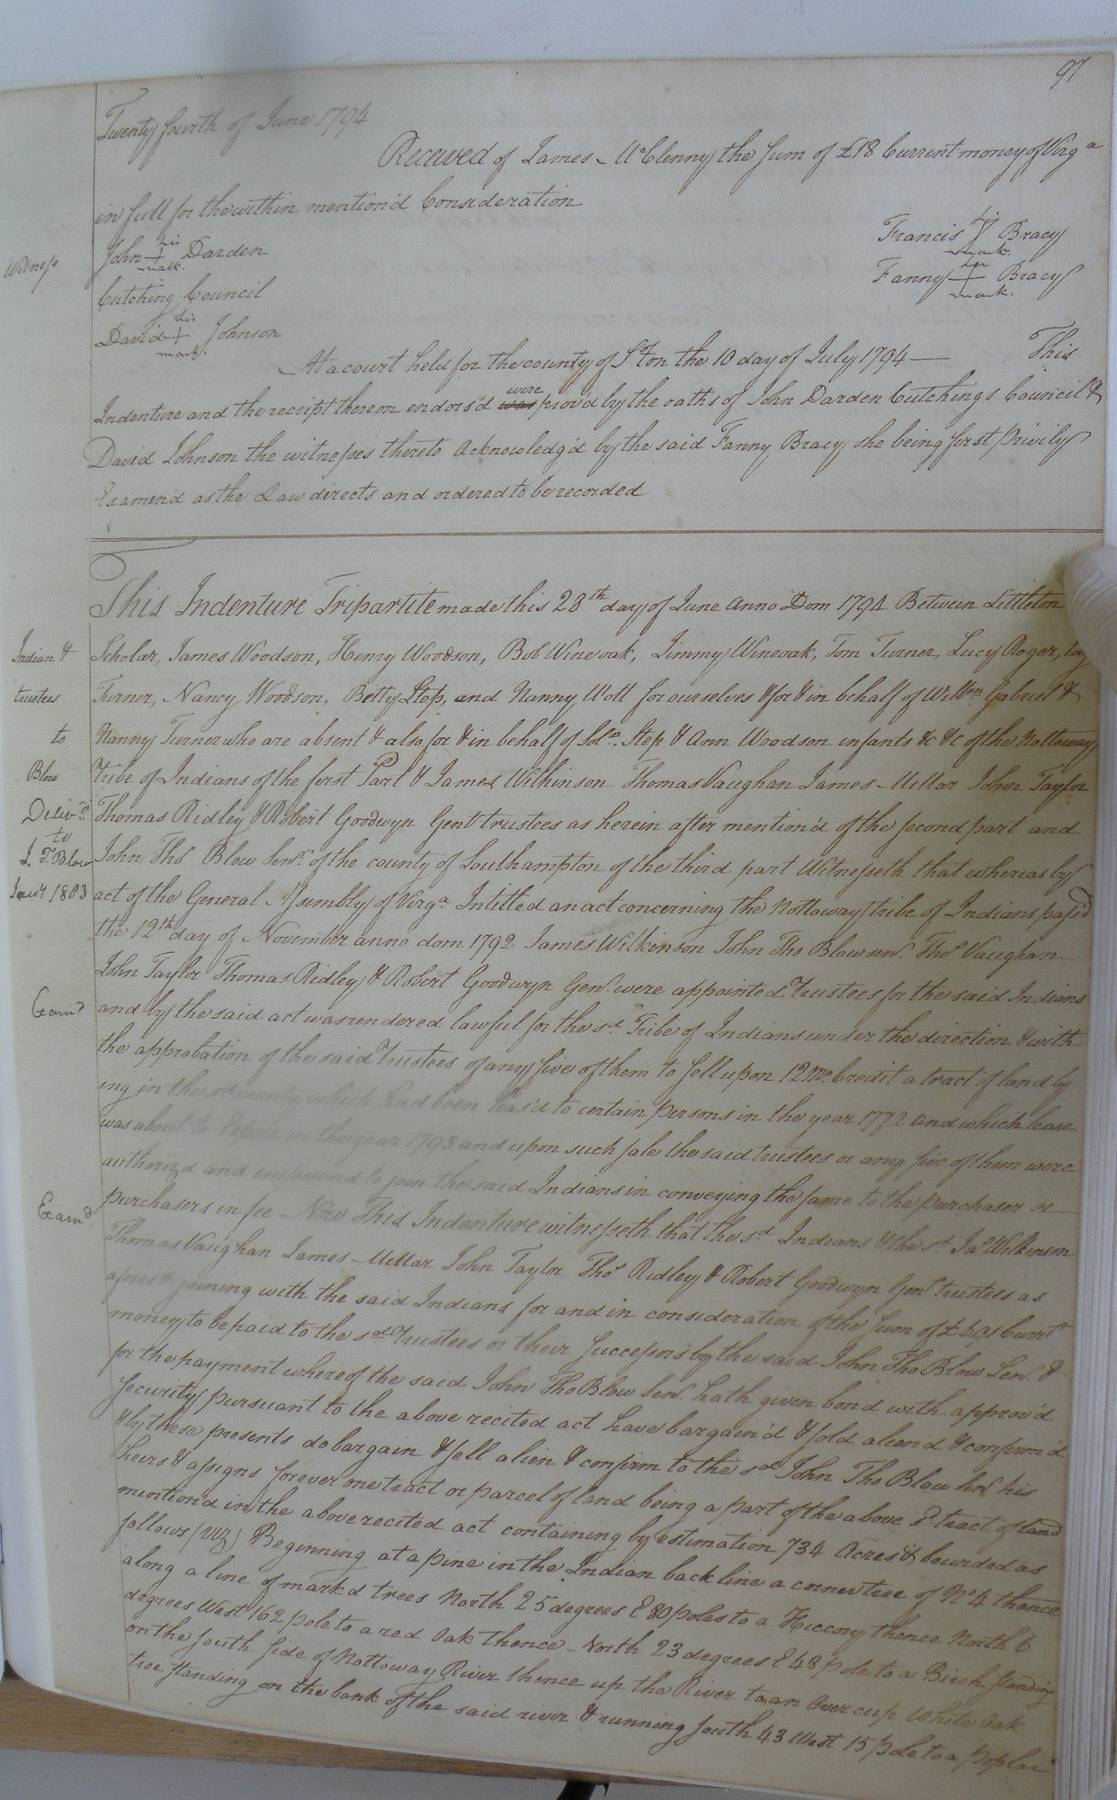 97
Twenty fourth of June 1794
Received of James McClenny the Sum of £18 Current money of Virga
in full for the within mention'd Consideration
Witness
John his + mark Darden
Cutching Council
David his + mark Johnson
Francis his mark Bracy
Fanny her + mark Bracy
At a court held for the county of Soton the 10 day of July 1794 — This
Indenture and the receipt thereon endors'd was were prov'd by the oaths of John Darden Cutchings Council &
David Johnson the witnesses thereto Acknowledg'd by the said Fanny Bracy she being first Privily
Examin'd as the Law directs and ordered to be recorded
This Indenture Tripartite made this 28th day of June Anno Dom 1794 Between Littleton
Scholar, James Woodson, Henry Woodson, Bob Wineoak, Jimmy Wineoak, Tom Turner, Lucy Roger,
Turner, Nancy Woodson, Betty Step, and Nanny Wott for ourselves & for & in behalf of Gabriel &
Nanny Turner who are absent & also for & in behalf of Step & Ann Woodson infants &c &c of the Nottoway
tribe of Indians of the first Part & James Wilkinson Thomas Vaughan James Millar John Taylor
Thomas Ridley & Robert Goodwyn Gent trustees as herein after mention'd of the second part and
John Tho Blow Senr. of the county of Southampton of the third part Witnesseth that whereas by
act of the General Assembly of Virga. Intitled an act concerning the Nottoway tribe of Indians pass'd
the 12th day of November anno dom 1792 James Wilkinson John Tho Blow senr. Thos Vaughan
John Taylor Thomas Ridley & Robert Goodwyn Gent. were appointed Trustees for the said Indians
and by the said act was rendered lawful for the sd Tribe of Indians under the direction & with
the approbation of the said Trustees of any five of them to sell upon 12 mo. Credit a tract of land ly
ing in the sd county which had been leas'd to certain persons in the year 1772 and which lease
was about to Expire in the year 1793 and upon such sale the said trustees or any five of them were
authoriz'd and empower'd to join the said Indians in conveying the same to the purchaser or
purchasers in fee Now This Indenture witnesseth that the sd Indians & the sd Jas Wilkinson
Thomas Vaughan James Millar John Taylor Thos Ridley & Robert Goodwyn Gent trustees as
aforesd joining with the said Indians for and in consideration of the Sum of Currt
money to be paid to the sd trustees or their Successors by the said John Tho Blow Senr. &
for the payment whereof the said John Tho Blow Senr. hath given bond with approv'd
Security pursuant to the above recited act have bargain'd & sold alien'd & confirm'd
& by these presents do bargain & sell alien & confirm to the sd John Tho Blow Senr his
heirs & assigns forever one tract or parcel of land being a part of the above sd tract of land
mention'd in the above recited act containing by estimation 734 Acres & bounded as
follows (viz) Beginning at a pine in the Indian back line a corner tree of No 4 thence
along a line of mark'd trees North 25 degrees E 80 poles to a Hiccory thence North 6
degrees West 162 pole to a red Oak thence North 23 degrees E 48 pole to a Birch standing
on the South Side of Nottoway River thence up the River to an Overcup White Oak
tree standing on the bank of the said river & running South 43 West 15 pole to a poplar
Indian &
trustees
to
Blow
Deliv'd
to
J. T. Blow
Jany 1803
Examd
Examd